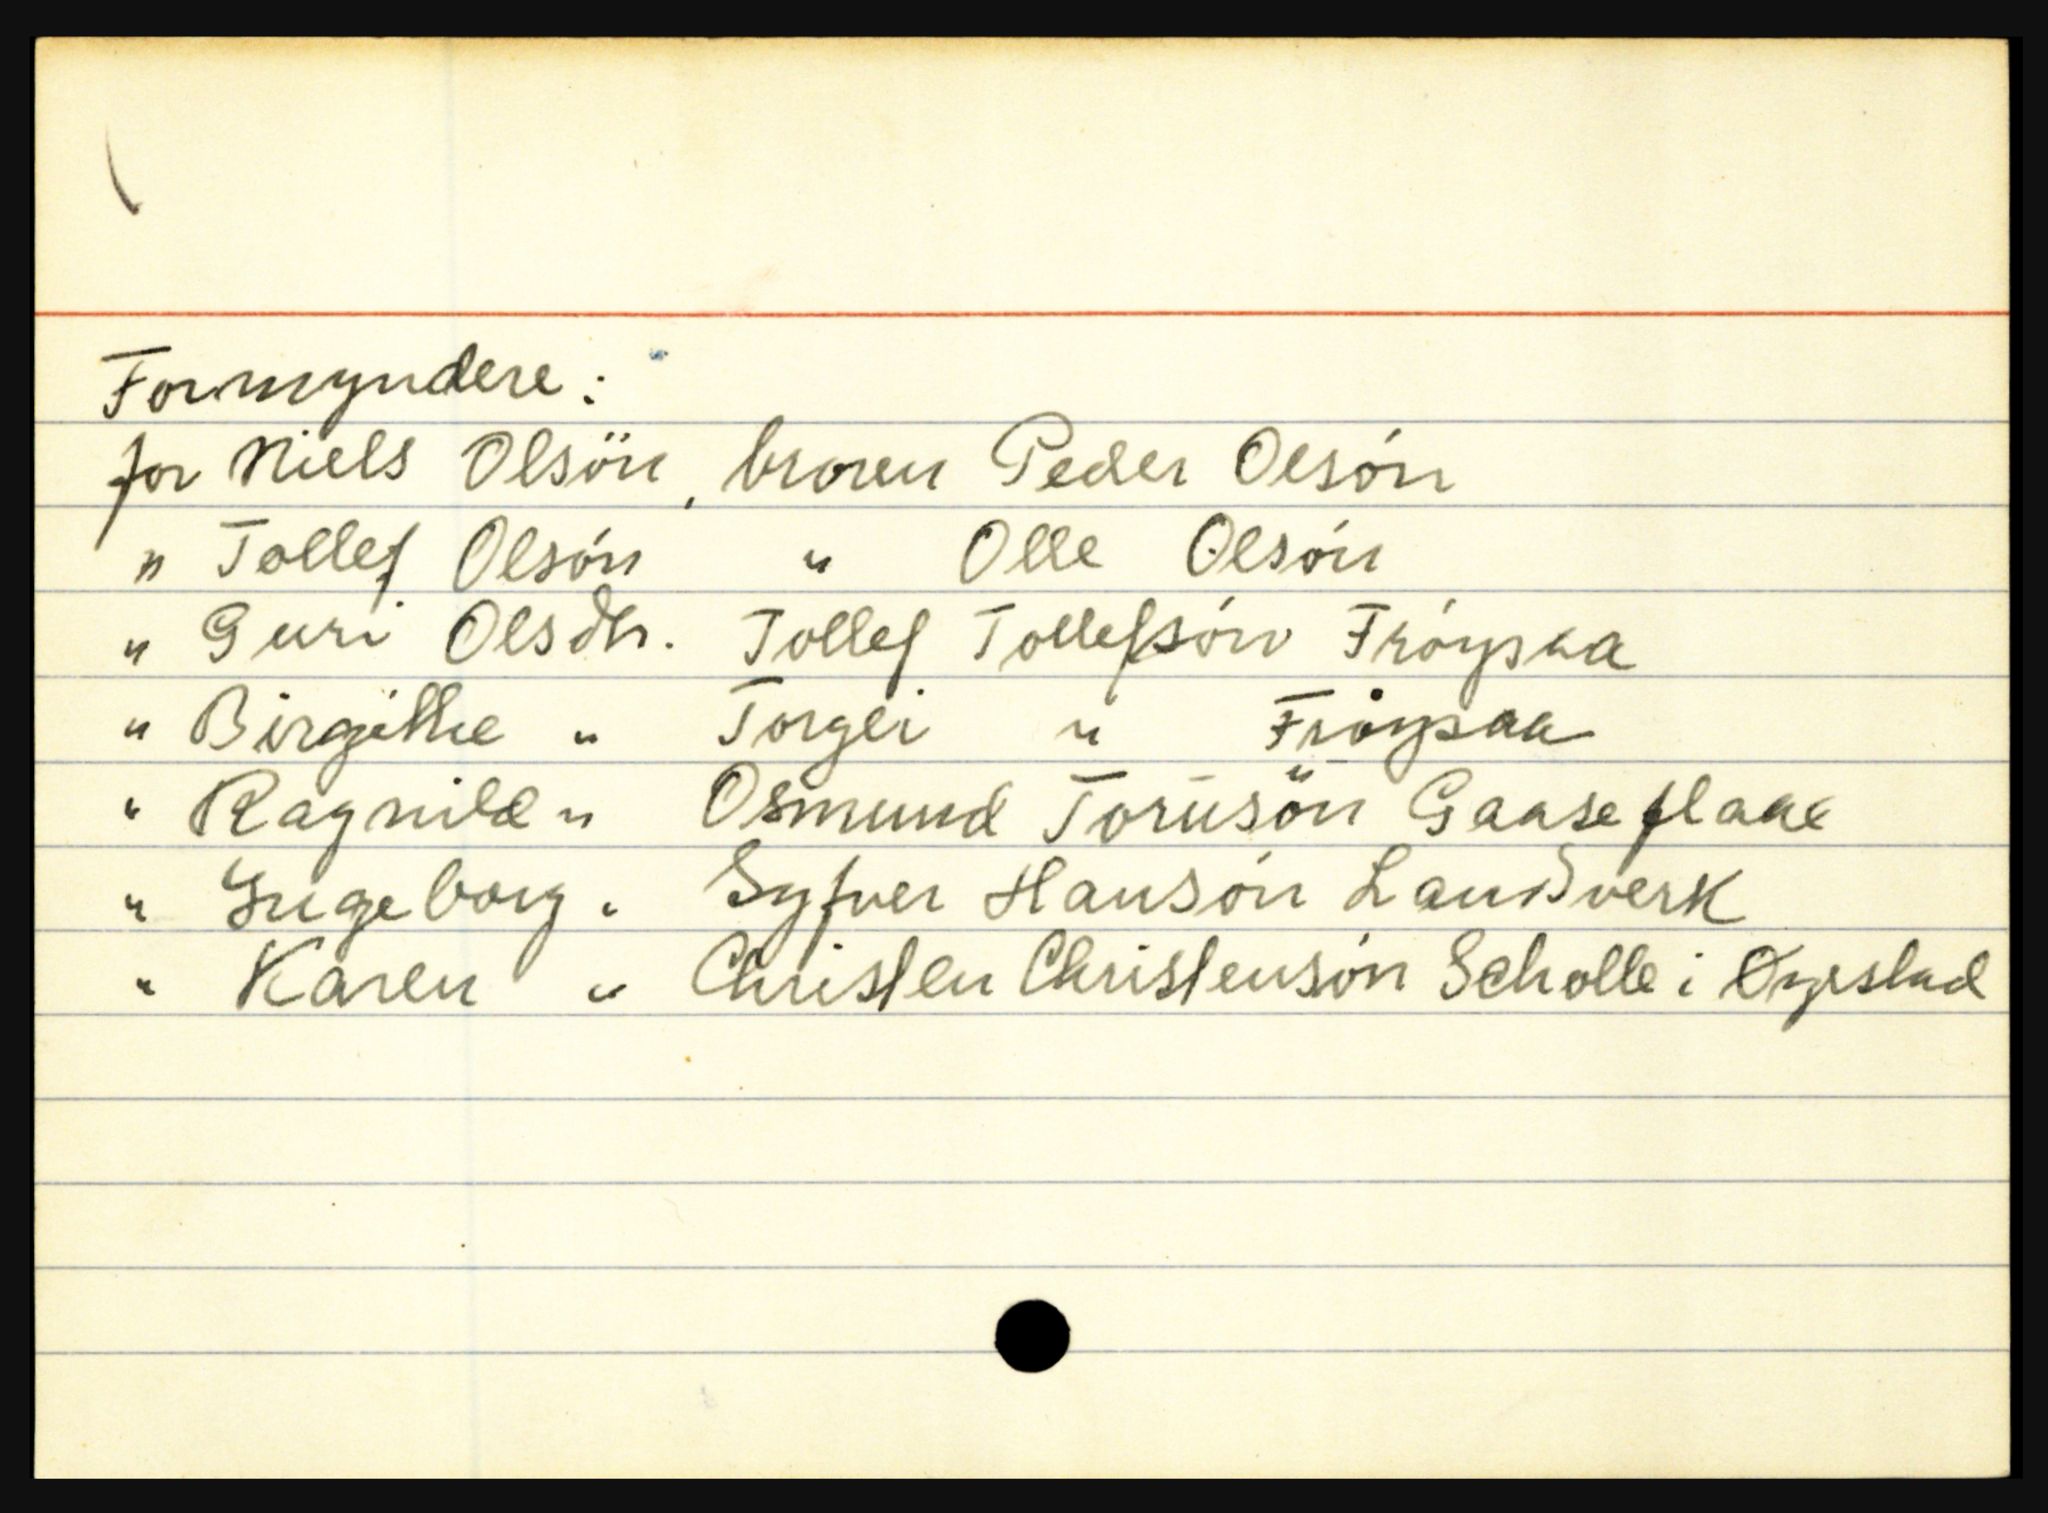 Formyndere:
for Niels Olsön, broren Peder Olsón
" Tollef Olsón " Olle Olsón
" Guri Olsdtr. Tollef Tollefsón Fróysaa
" Birgithe " Torgei " Fróysaa
" Ragnild " Osmund Torusön Gaaseflaae
" Ingeborg " Syfver Hansón Landsverk
" Karen " Christen Christensón Scholle i Øyestad